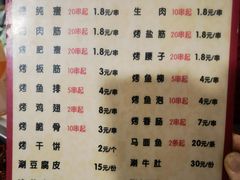 烤纯瘦 20串起 1.8元/串
烤肉筋 20串起 1.8元/串
烤肥瘦 20串起 1.8元/串
烤板筋 10串起 3元/串
烤鱼排 5串起 4元/串
烤鸡翅 2串起 8元/串
烤脆骨 10串起 3元/串
烤干饼 2元/个
涮豆腐皮 15元/份
生肉 10串起 1.8元/串
烤盐筋 20串起 1.8元/串
烤腰子 20串起 1.8元/串
烤鱼柳 5串起 4元/串
烤鱼泡 10串起 4元/串
烤香肠 5串起 7元/串
马面鱼 2条起 20元/条
涮牛肚 30元/份